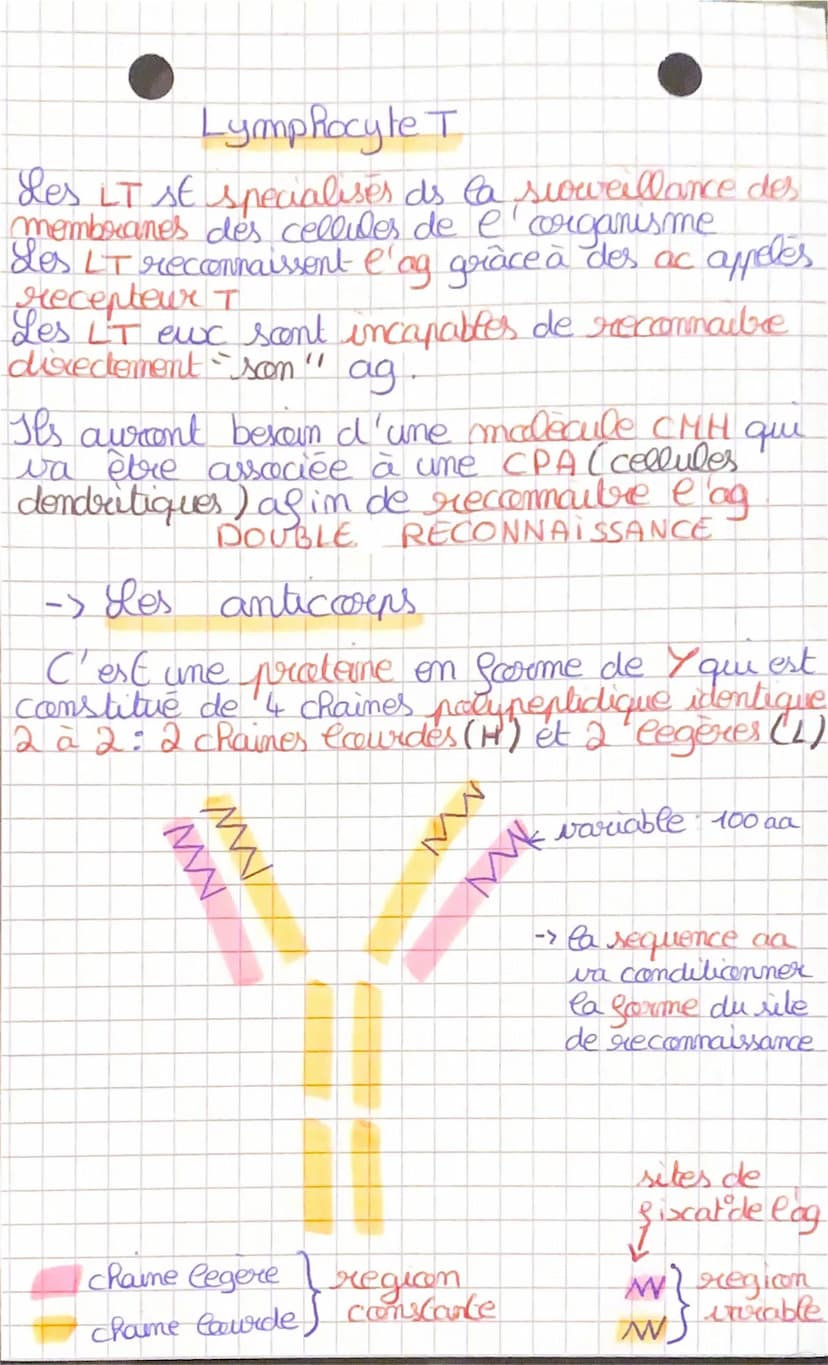 Lymphocyte T
Les LT st specialisés ds la surveillance des
membranes des cellules de l'organisme
Les LT reconnaissent l'ag grâce à des ac appelés
recepteur T
Les LT eux sont incapables de reconnaitre
directement "son" ag.
Ils auront besoin d'une molécule CMH qui
va être associée à une CPA (cellules
dendritiques) afin de reconnaitre l'ag
DOUBLE RECONNAISSANCE
-> Les anticorps
C'est une proteine en forme de Y qui est
constitué de 4 chaines polypeptidique identique
2 à 2 : 2 chaines lourdes (H) et 2 legères (L)
variable : 100 aa
-> la sequence aa
va conditionner
la forme du site
de reconnaissance
sites de
fixat° de l'ag
chaine legère
chaine lourde
region
constante
region
variable